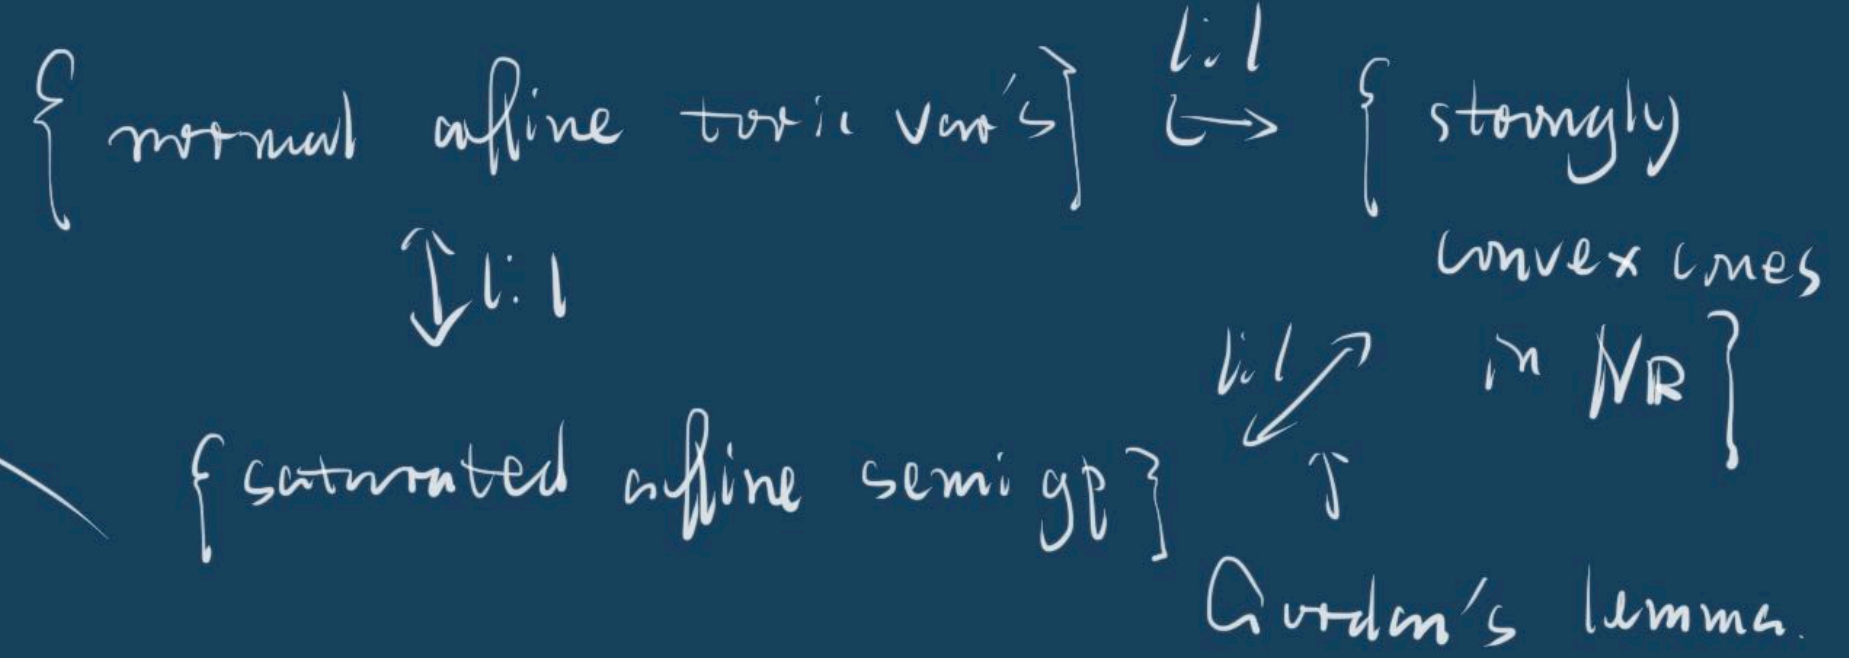 { normal affine toric var's } 1:1 ↔ { strongly
convex cones
in N_ℝ }
↕ 1:1
1:1 ↗↙
{ saturated affine semi gp } ↑
Gordan's lemma.